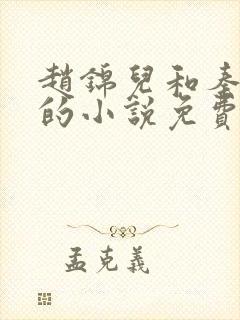 趙錦兒和秦
的小說免費
孟克義